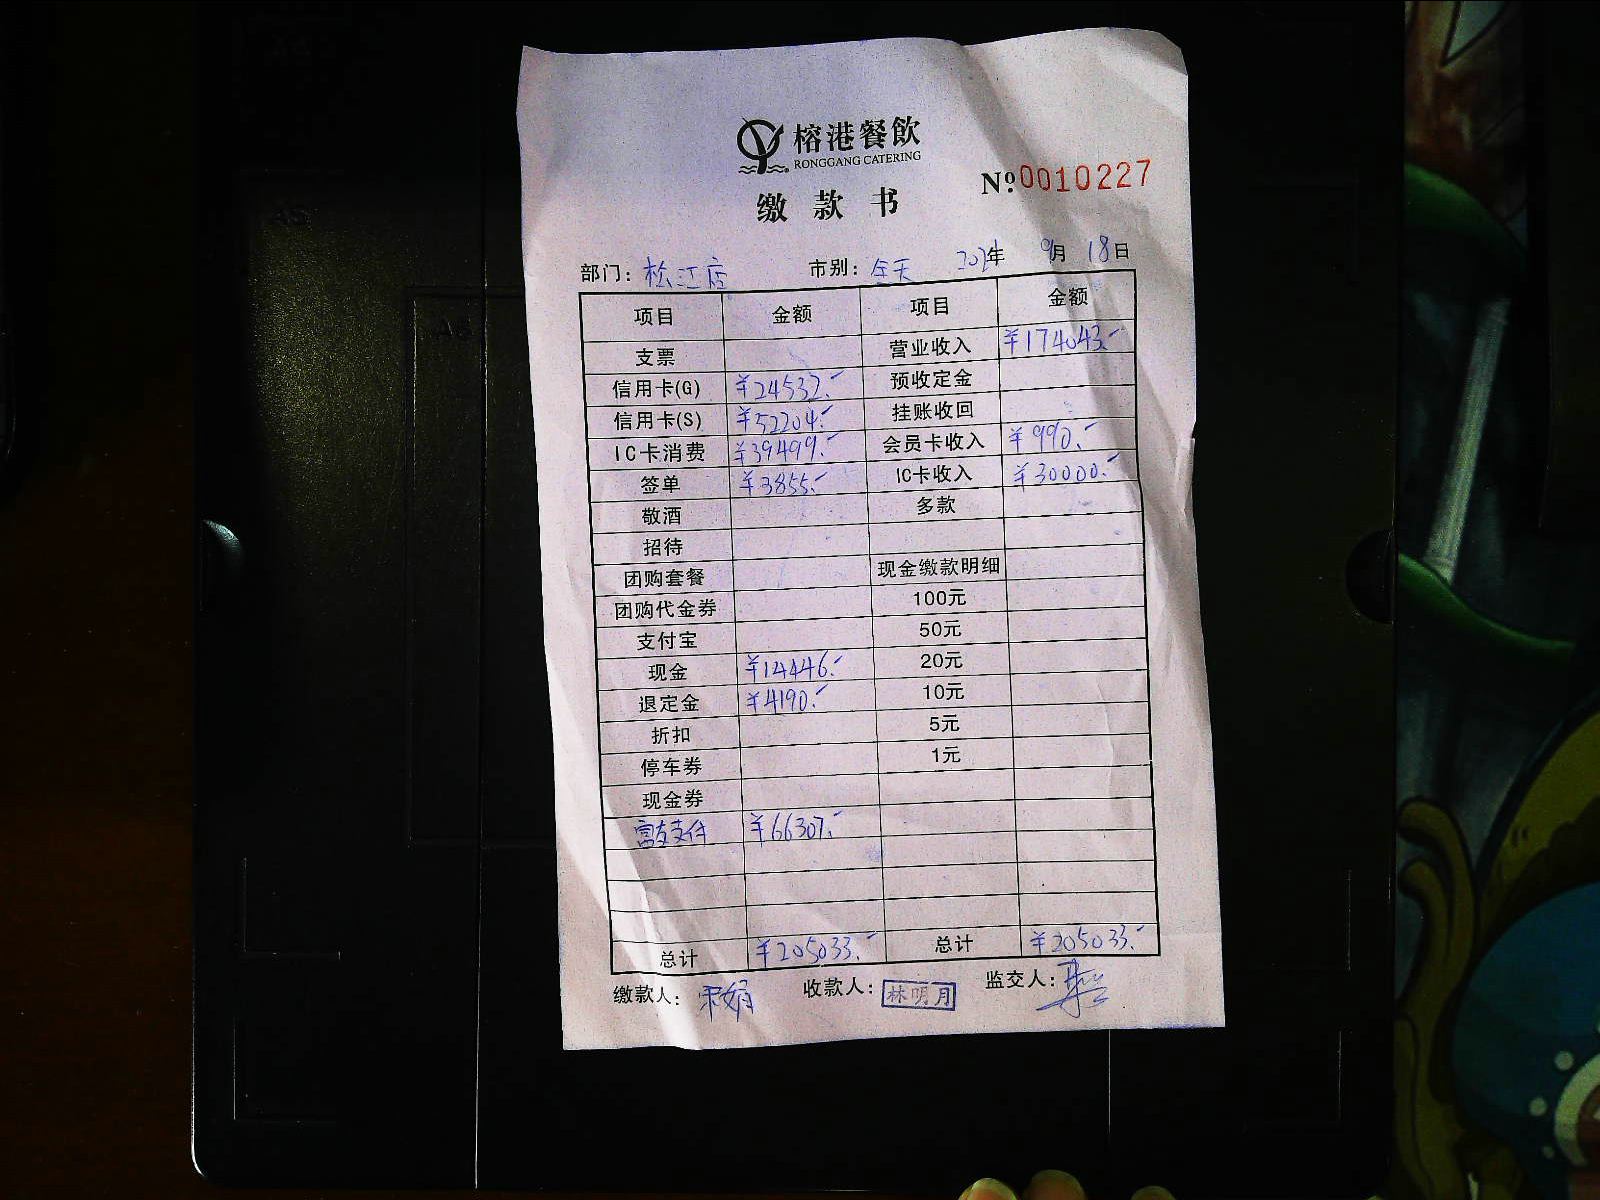 榕港餐飲
RONGGANG CATERING
缴款书
Nº:0010227
部门: 松江店 市别: 全天 年 9月 18日
项目 金额 项目 金额
支票 营业收入 ¥174043.-
信用卡(G) ¥24532.- 预收定金
信用卡(S) ¥52204.- 挂账收回
IC卡消费 ¥39499.- 会员卡收入 ¥990.-
签单 ¥3855.- IC卡收入 ¥30000.-
敬酒 多款
招待
团购套餐 现金缴款明细
团购代金券 100元
支付宝 50元
现金 ¥14446.- 20元
退定金 ¥4190.- 10元
折扣 5元
停车券 1元
现金券
富友支付 ¥66307.-
总计 ¥205033.- 总计 ¥205033.-
缴款人: 收款人: 林明月 监交人: